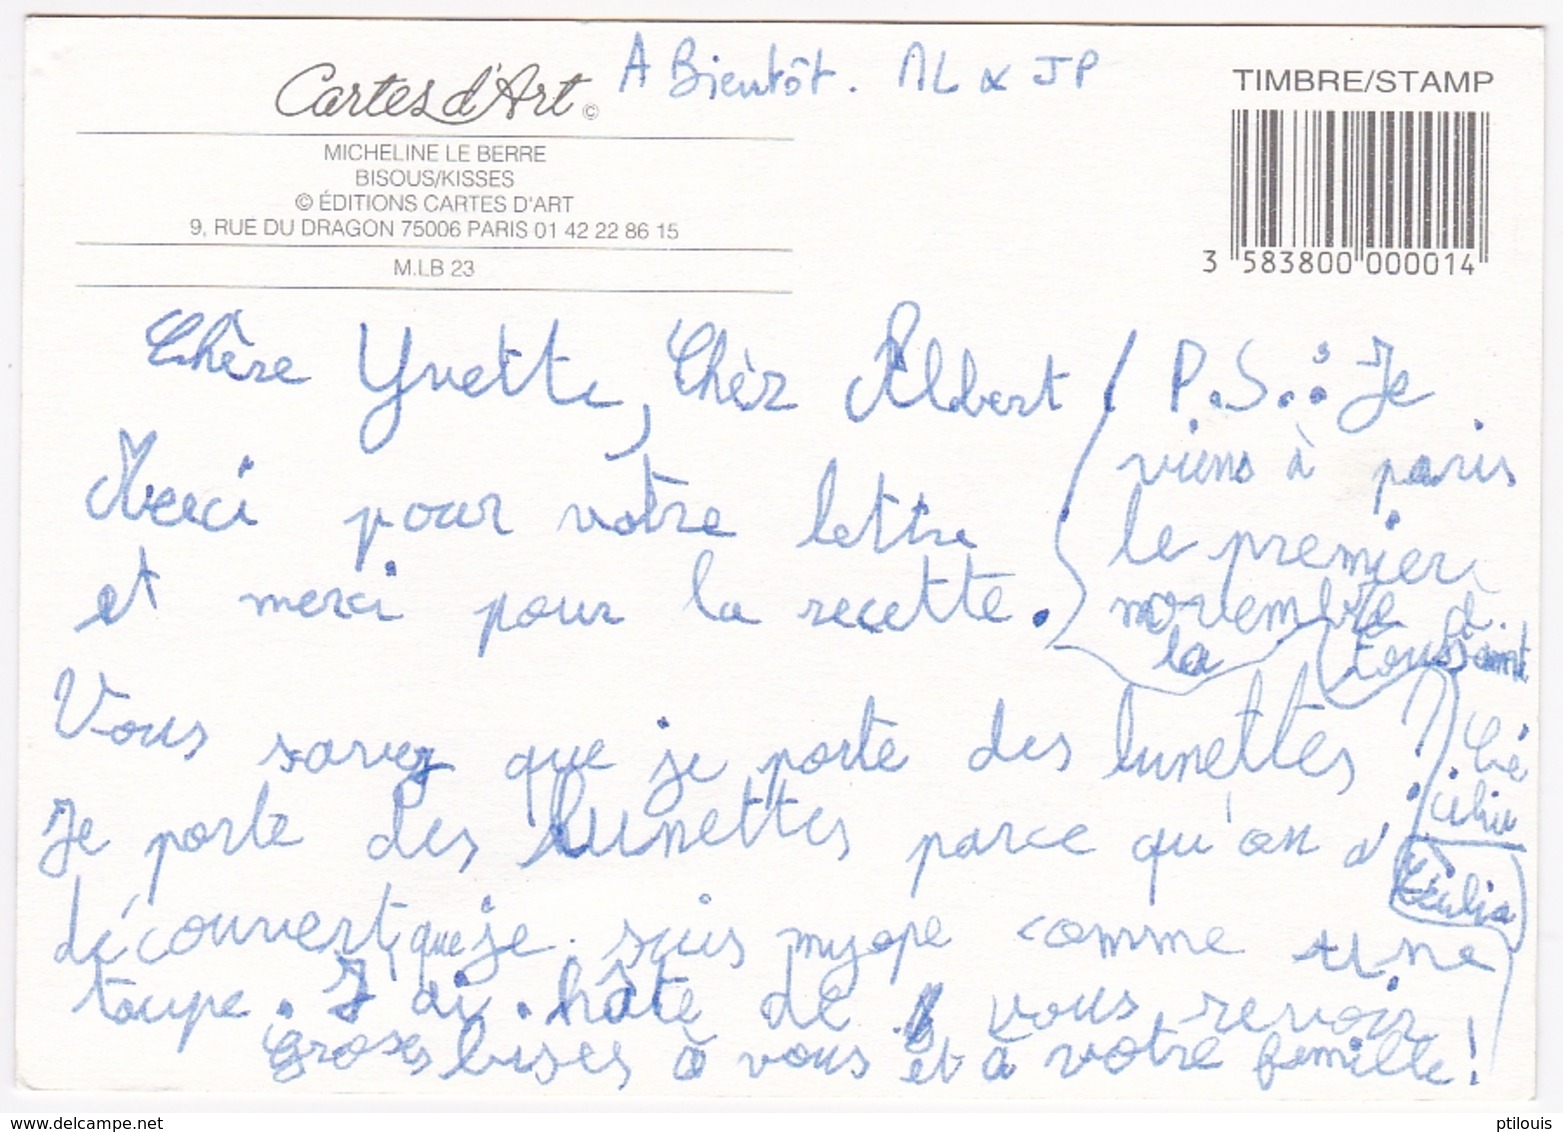 A Bientôt. AL & JP
Cartes d'Art ©
TIMBRE/STAMP
MICHELINE LE BERRE
BISOUS/KISSES
© ÉDITIONS CARTES D'ART
9, RUE DU DRAGON 75006 PARIS 01 42 22 86 15
M.LB 23
3 583800 000014
Chère Yvette, Chèr Albert
Merci pour votre lettre
et merci pour la recette.
Vous savez que je porte des lunettes ?
Je porte des lunettes parce qu'on a
découvert que je suis myope comme une
taupe. J'ai hâte de vous revoir
groses bises à vous et à votre famille !
P.S.: Je
viens à paris
le premier
novembre à
la toussaint